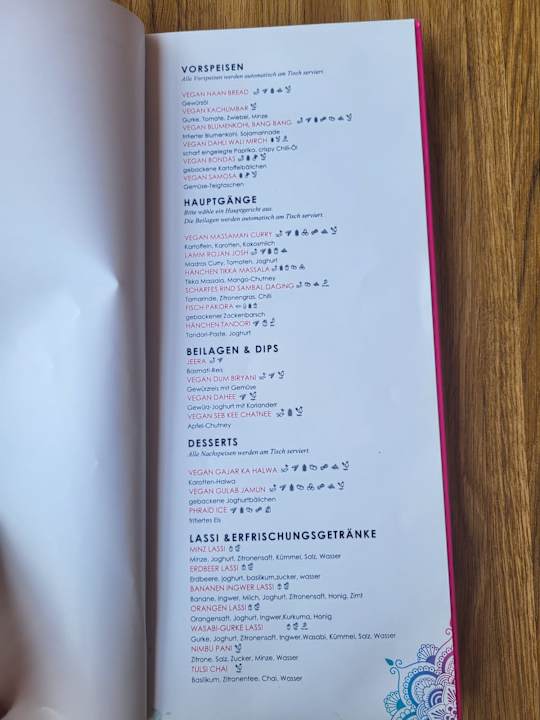 VORSPEISEN
Alle Vorspeisen werden automatisch am Tisch serviert.
VEGAN NAAN BREAD
Gewürzöl
VEGAN KACHUMBAR
Gurke, Tomate, Zwiebel, Minze
VEGAN BLUMENKOHL BANG BANG
fritierter Blumenkohl, Sojamarinade
VEGAN DAHLI WALI MIRCH
scharf eingelegte Paprika, crispy Chili-Öl
VEGAN BONDAS
gebackene Kartoffelbällchen
VEGAN SAMOSA
Gemüse-Teigtaschen
HAUPTGÄNGE
Bitte wähle ein Hauptgericht aus.
Die Beilagen werden automatisch am Tisch serviert.
VEGAN MASSAMAN CURRY
Kartoffeln, Karotten, Kokosmilch
LAMM ROJAN JOSH
Madras Curry, Tomaten, Joghurt
HÄNCHEN TIKKA MASSALA
Tikka Massala, Mango-Chutney
SCHARFES RIND SAMBAL DAGING
Tamarinde, Zitronengras, Chili
FISCH PAKORA
gebackener Zackenbarsch
HÄNCHEN TANDORI
Tandori-Paste, Joghurt
BEILAGEN & DIPS
JEERA
Basmati-Reis
VEGAN DUM BIRYANI
Gewürzreis mit Gemüse
VEGAN DAHEE
Gewürz-Joghurt mit Koriander
VEGAN SEB KEE CHATNEE
Apfel-Chutney
DESSERTS
Alle Nachspeisen werden am Tisch serviert.
VEGAN GAJAR KA HALWA
Karotten-Halwa
VEGAN GULAB JAMUN
gebackene Joghurtbällchen
PHRAID ICE
fritiertes Eis
LASSI &ERFRISCHUNGSGETRÄNKE
MINZ LASSI
Minze, Joghurt, Zitronensaft, Kümmel, Salz, Wasser
ERDBEER LASSI
Erdbeere, joghurt, basilikum,zucker, wasser
BANANEN INGWER LASSI
Banane, Ingwer, Milch, Joghurt, Zitronensaft, Honig, Zimt
ORANGEN LASSI
Orangensaft, Joghurt, Ingwer,Kurkuma, Honig
WASABI-GURKE LASSI
Gurke, Joghurt, Zitronensaft, Ingwer,Wasabi, Kümmel, Salz, Wasser
NIMBU PANI
Zitrone, Salz, Zucker, Minze, Wasser
TULSI CHAI
Basilikum, Zitronentee, Chai, Wasser